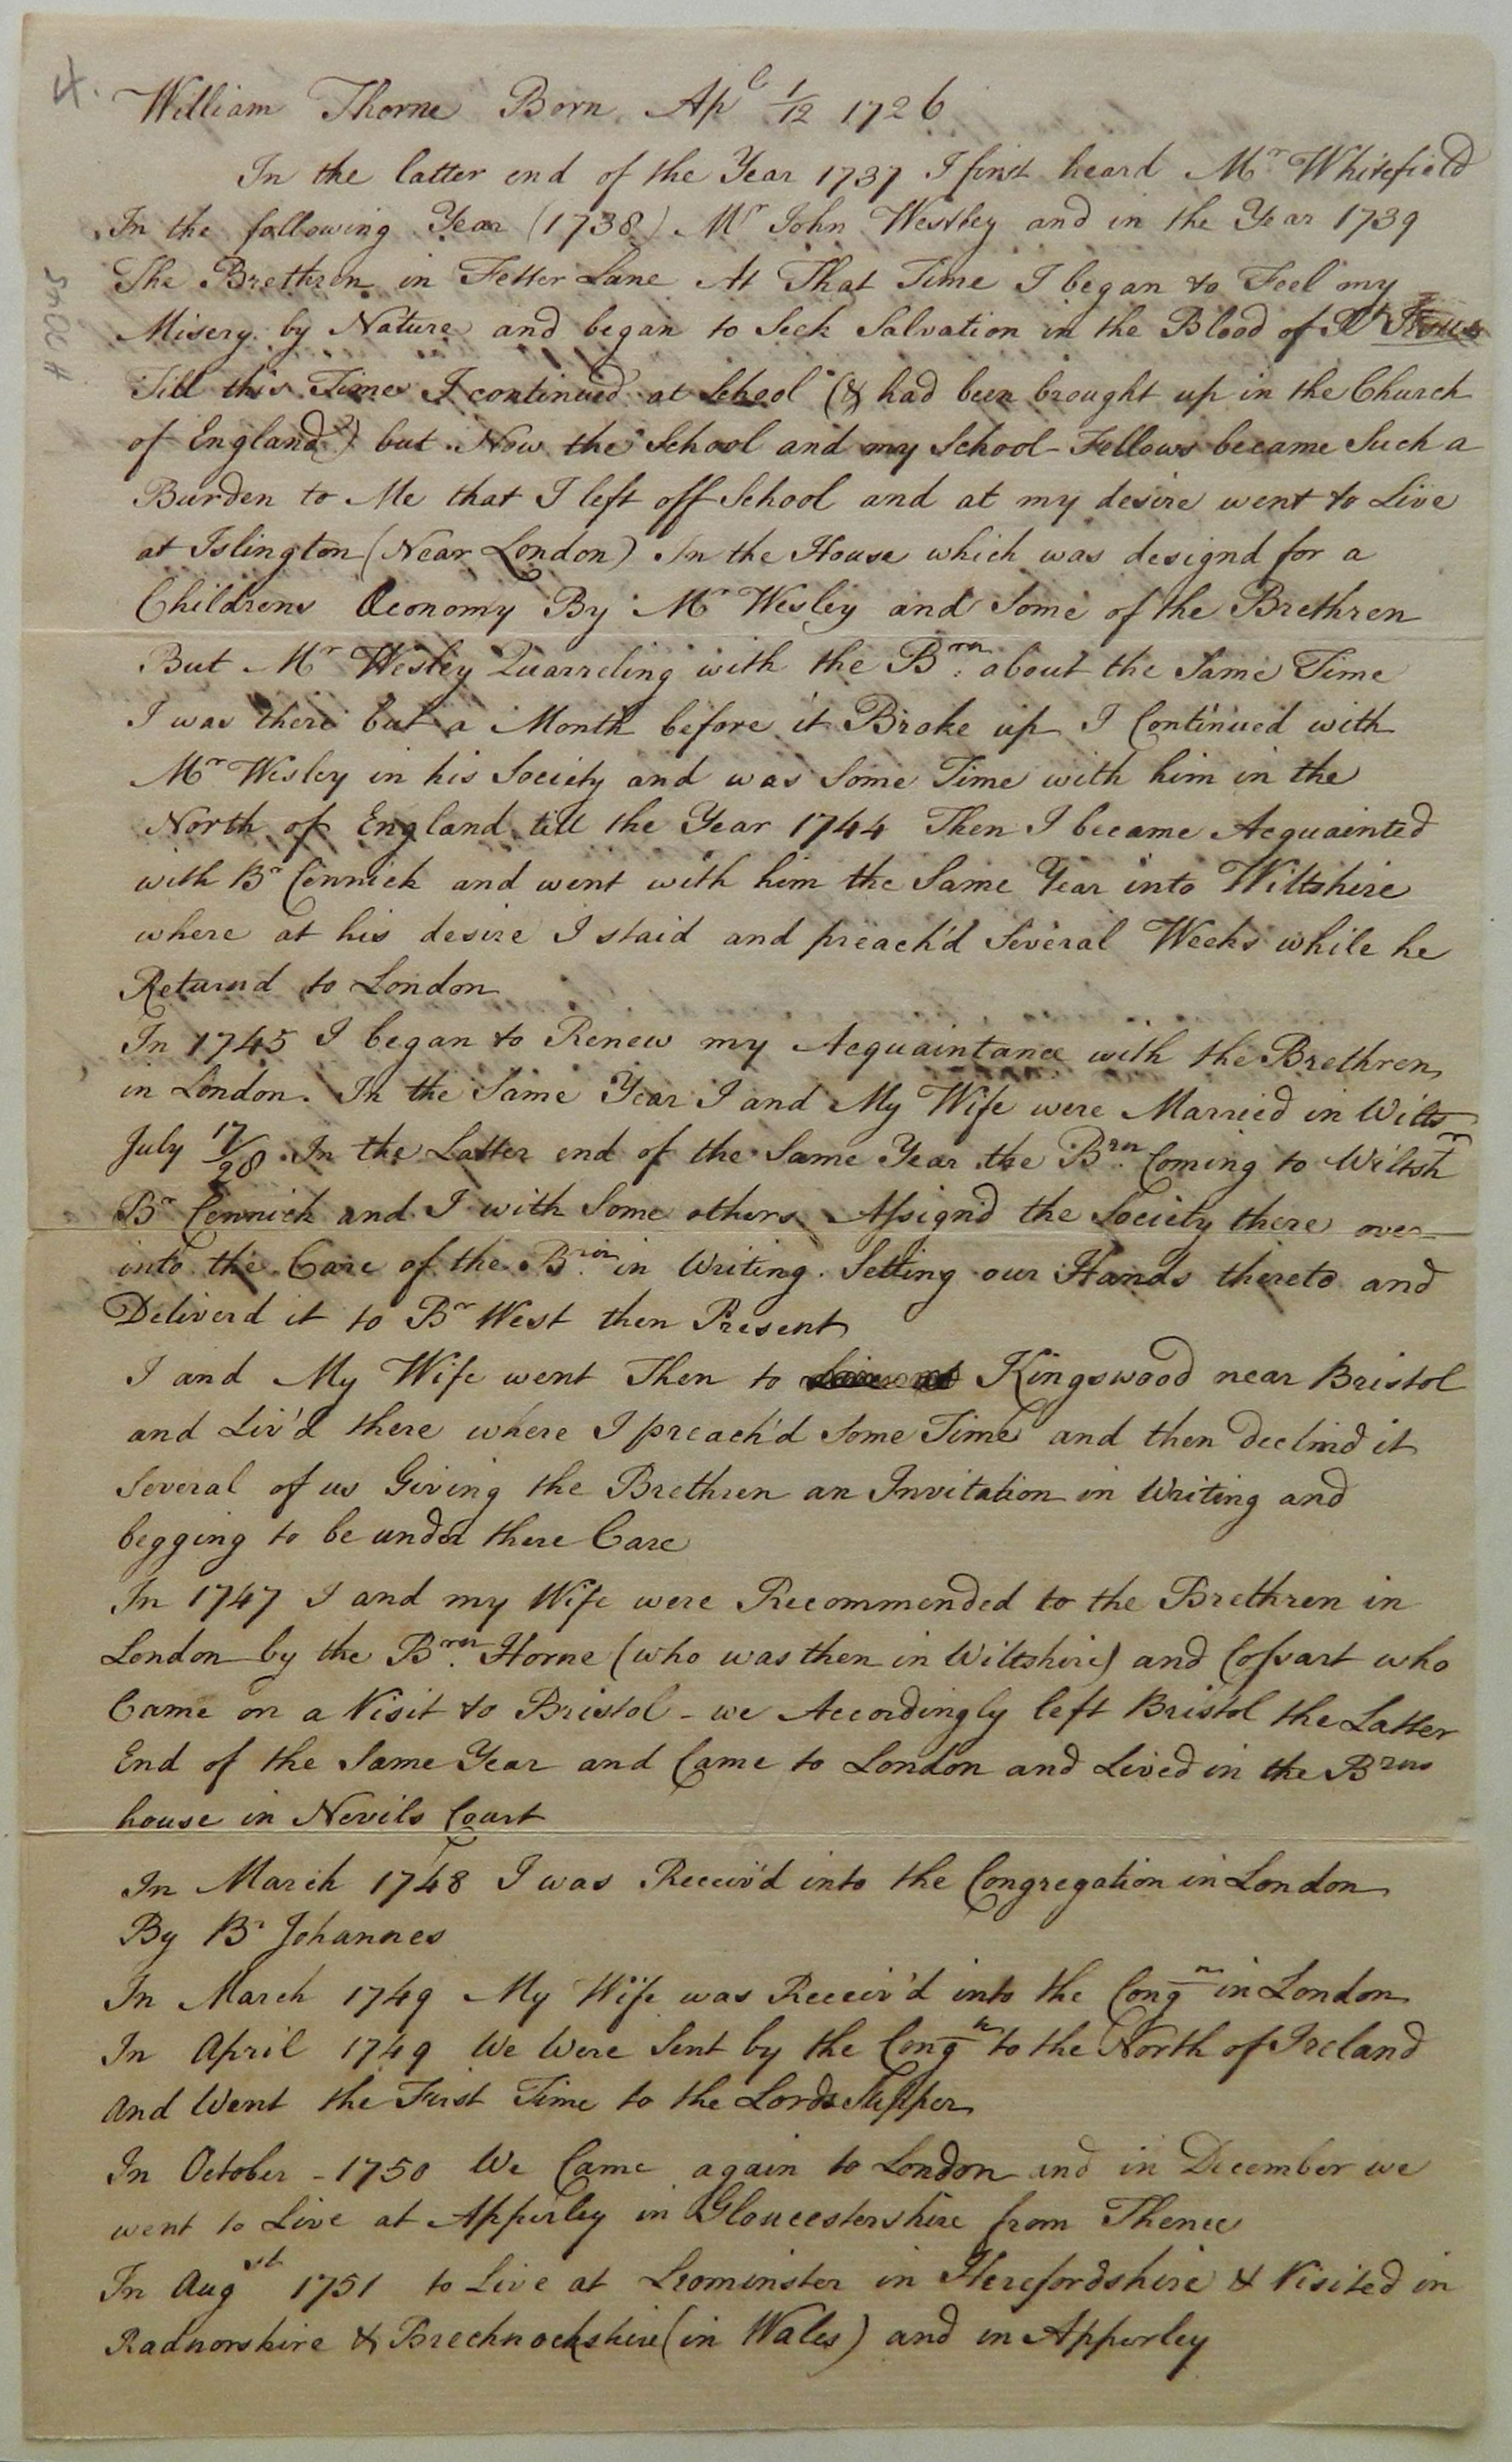 4.
William Thorne Born Apl 1/12 1726
In the latter end of the Year 1737 I first heard Mr Whitefield
In the following Year (1738) Mr John Westley and in the Year 1739
The Brethren in Fetter Lane At That Time I began to Feel my
Misery by Nature and began to Seek Salvation in the Blood of
Till this Time I continued at School (& had been brought up in the Church
of England) but Now the School and my School-Fellows became Such a
Burden to Me that I left off School and at my desire went to Live
at Islington (Near London) In the House which was designd for a
Childrens Oeconomy By Mr Wesley and Some of the Brethren
But Mr Wesley Quarreling with the Brn. about the Same Time
I was there but a Month before it Broke up I Continued with
Mr Wesley in his Society and was Some Time with him in the
North of England till the Year 1744 Then I became Acquainted
with Br Cennick and went with him the Same Year into Wiltshire
where at his desire I staid and preach'd Several Weeks while he
Returnd to London
In 1745 I began to Renew my Acquaintance with the Brethren
in London. In the Same Year I and My Wife were Married in Wilts
July 17/28 In the Latter end of the Same Year the Brn. Coming to Wiltsh
Br Cennick and I with Some others Assign'd the Society there over
into the Care of the Brn. in Writing. Setting our Hands thereto and
Deliverd it to Br West then Present
I and My Wife went Then to Kingswood near Bristol
and Liv'd there where I preach'd Some Time and then declind it
Several of us Giving the Brethren an Invitation in Writing and
begging to be under there Care
In 1747 I and my Wife were Recommended to the Brethren in
London by the Brn. Horne (who was then in Wiltshire) and Cossart who
Came on a Visit to Bristol - we Accordingly left Bristol the Latter
End of the Same Year and Came to London and Lived in the Brns
house in Nevils Court
In March 1748 I was Receiv'd into the Congregation in London
By Br Johannes
In March 1749 My Wife was Receiv'd into the Congn in London
In April 1749 We Were Sent by the Congn to the North of Ireland
and Went the First Time to the Lords Supper
In October - 1750 We Came again to London and in December we
went to Live at Apperley in Gloucestershire from Thence
In Augst 1751 to Live at Leominster in Herefordshire & Visited in
Radnorshire & Brecknockshire (in Wales) and in Apperley